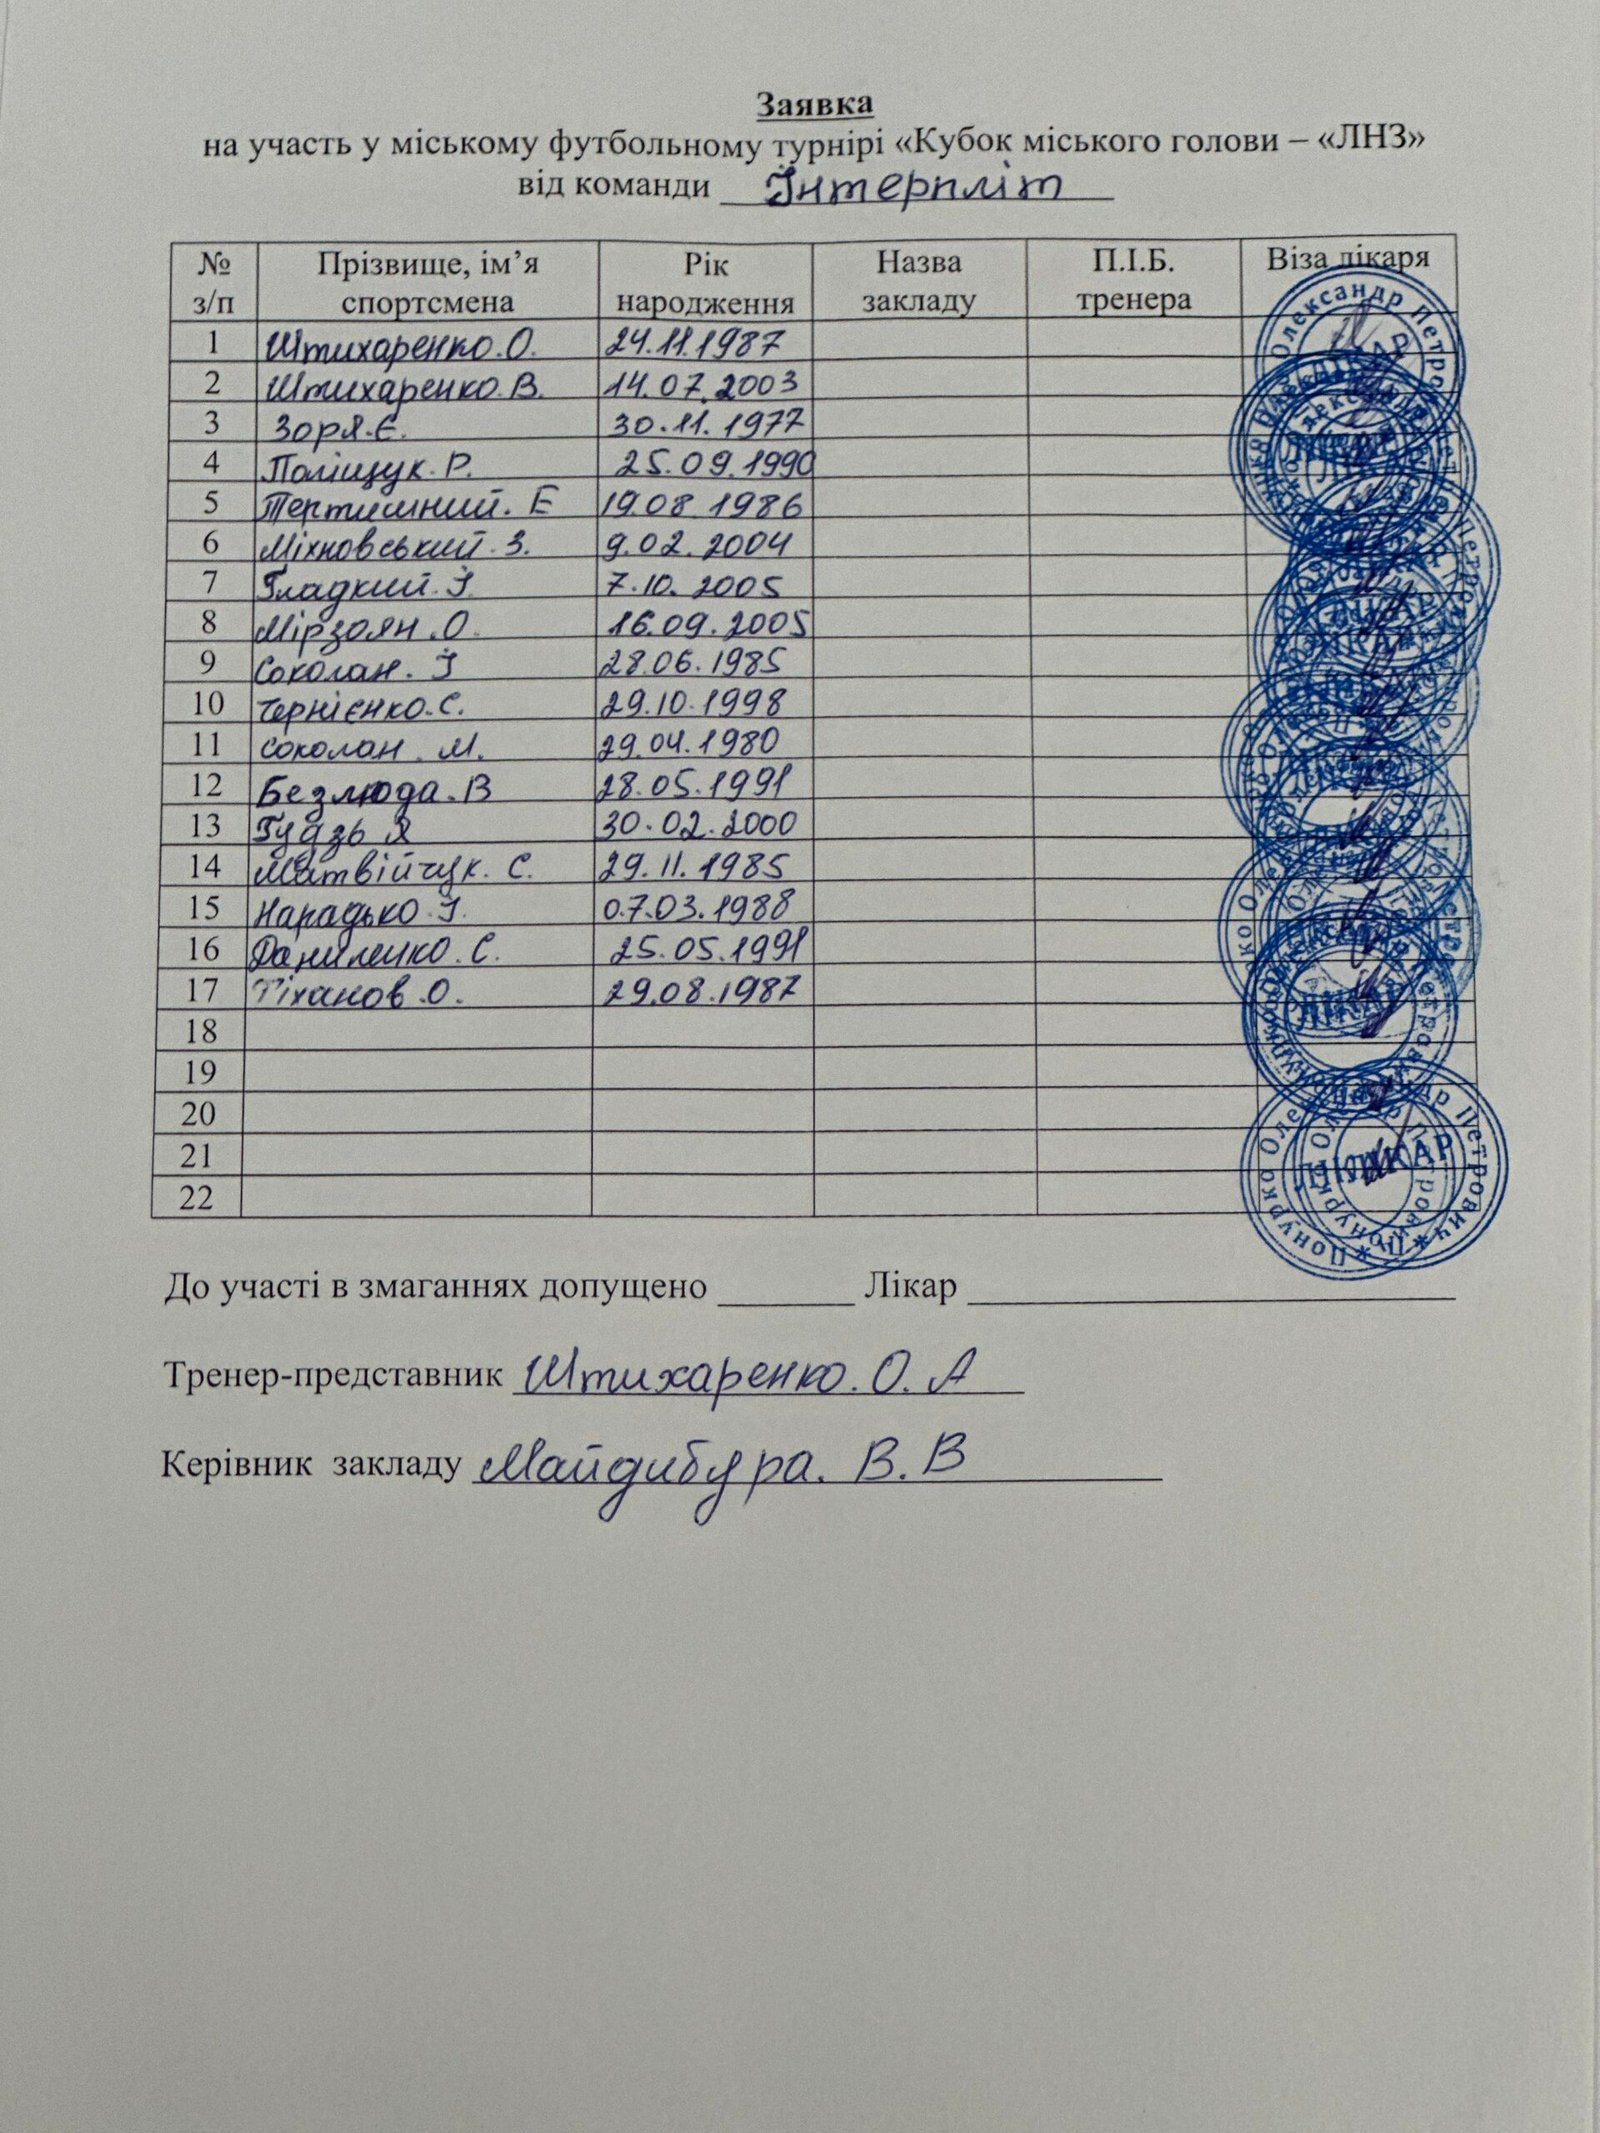 Заявка
на участь у міському футбольному турнірі «Кубок міського голови – «ЛНЗ»
від команди Інтерпліт
№ з/п Прізвище, ім’я спортсмена Рік народження Назва закладу П.І.Б. тренера Віза лікаря
1 Штихаренко.О. 24.11.1987
2 Штихаренко.В. 14.07.2003
3 Зоря.Є. 30.11.1977
4 Поліщук.Р. 25.09.1990
5 Тертишний.Е 19.08.1986
6 Міхновський.З. 9.02.2004
7 Гладкий.І 7.10.2005
8 Мірзоян.О. 16.09.2005
9 Соколан.І 28.06.1985
10 Чернієнко.С. 29.10.1998
11 Соколан.М. 29.04.1980
12 Безлюда.В 28.05.1991
13 Гудзь Я 30.02.2000
14 Матвійчук.С. 29.11.1985
15 Нарадько.І. 07.03.1988
16 Даниленко.С. 25.05.1991
17 Тіханов.О. 29.08.1987
18
19
20
21
22
Понурко Олександр Петрович * ЛІКАР
До участі в змаганнях допущено Лікар
Тренер-представник Штихаренко.О.А
Керівник закладу Майдибура.В.В